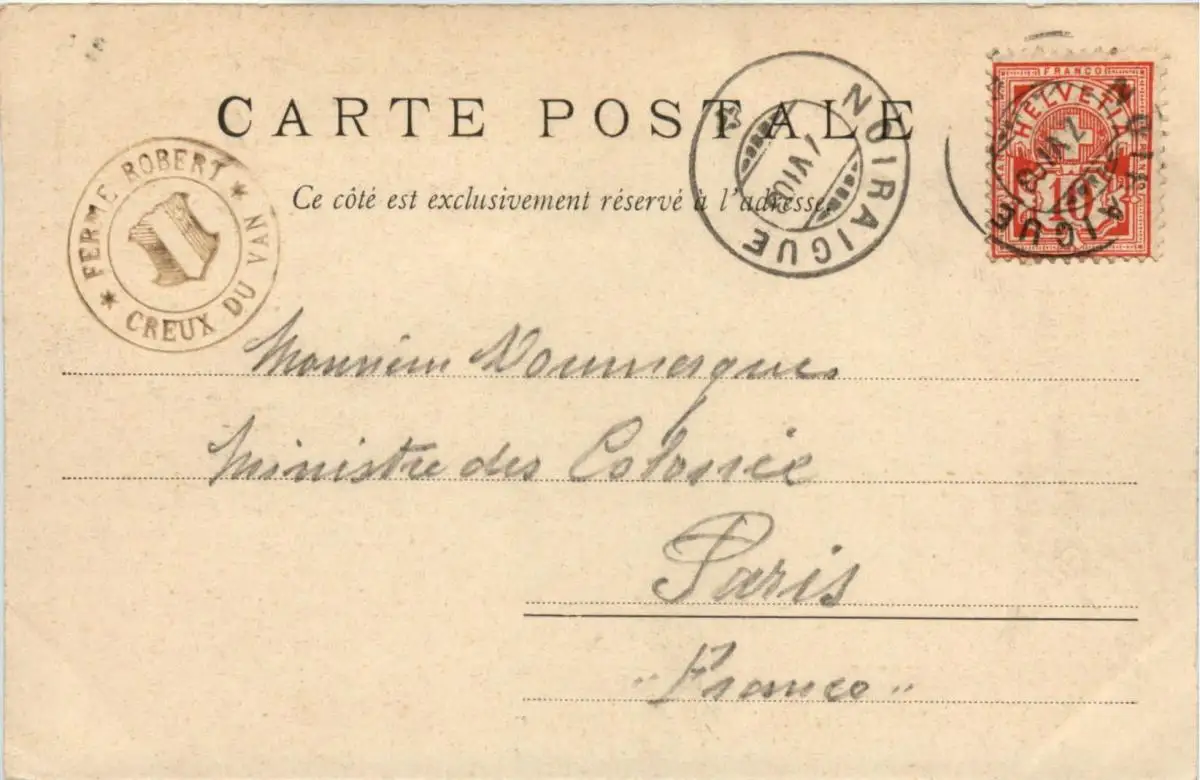 CARTE POSTALE
Ce côté est exclusivement réservé à l'adresse.
* FERME ROBERT *
CREUX DU VAN
NOIRAIGUE
FRANCO
HELVETIA
10
NOIRAIGUE
Monsieur Doumergue
Ministre des Colonie
Paris
"France"